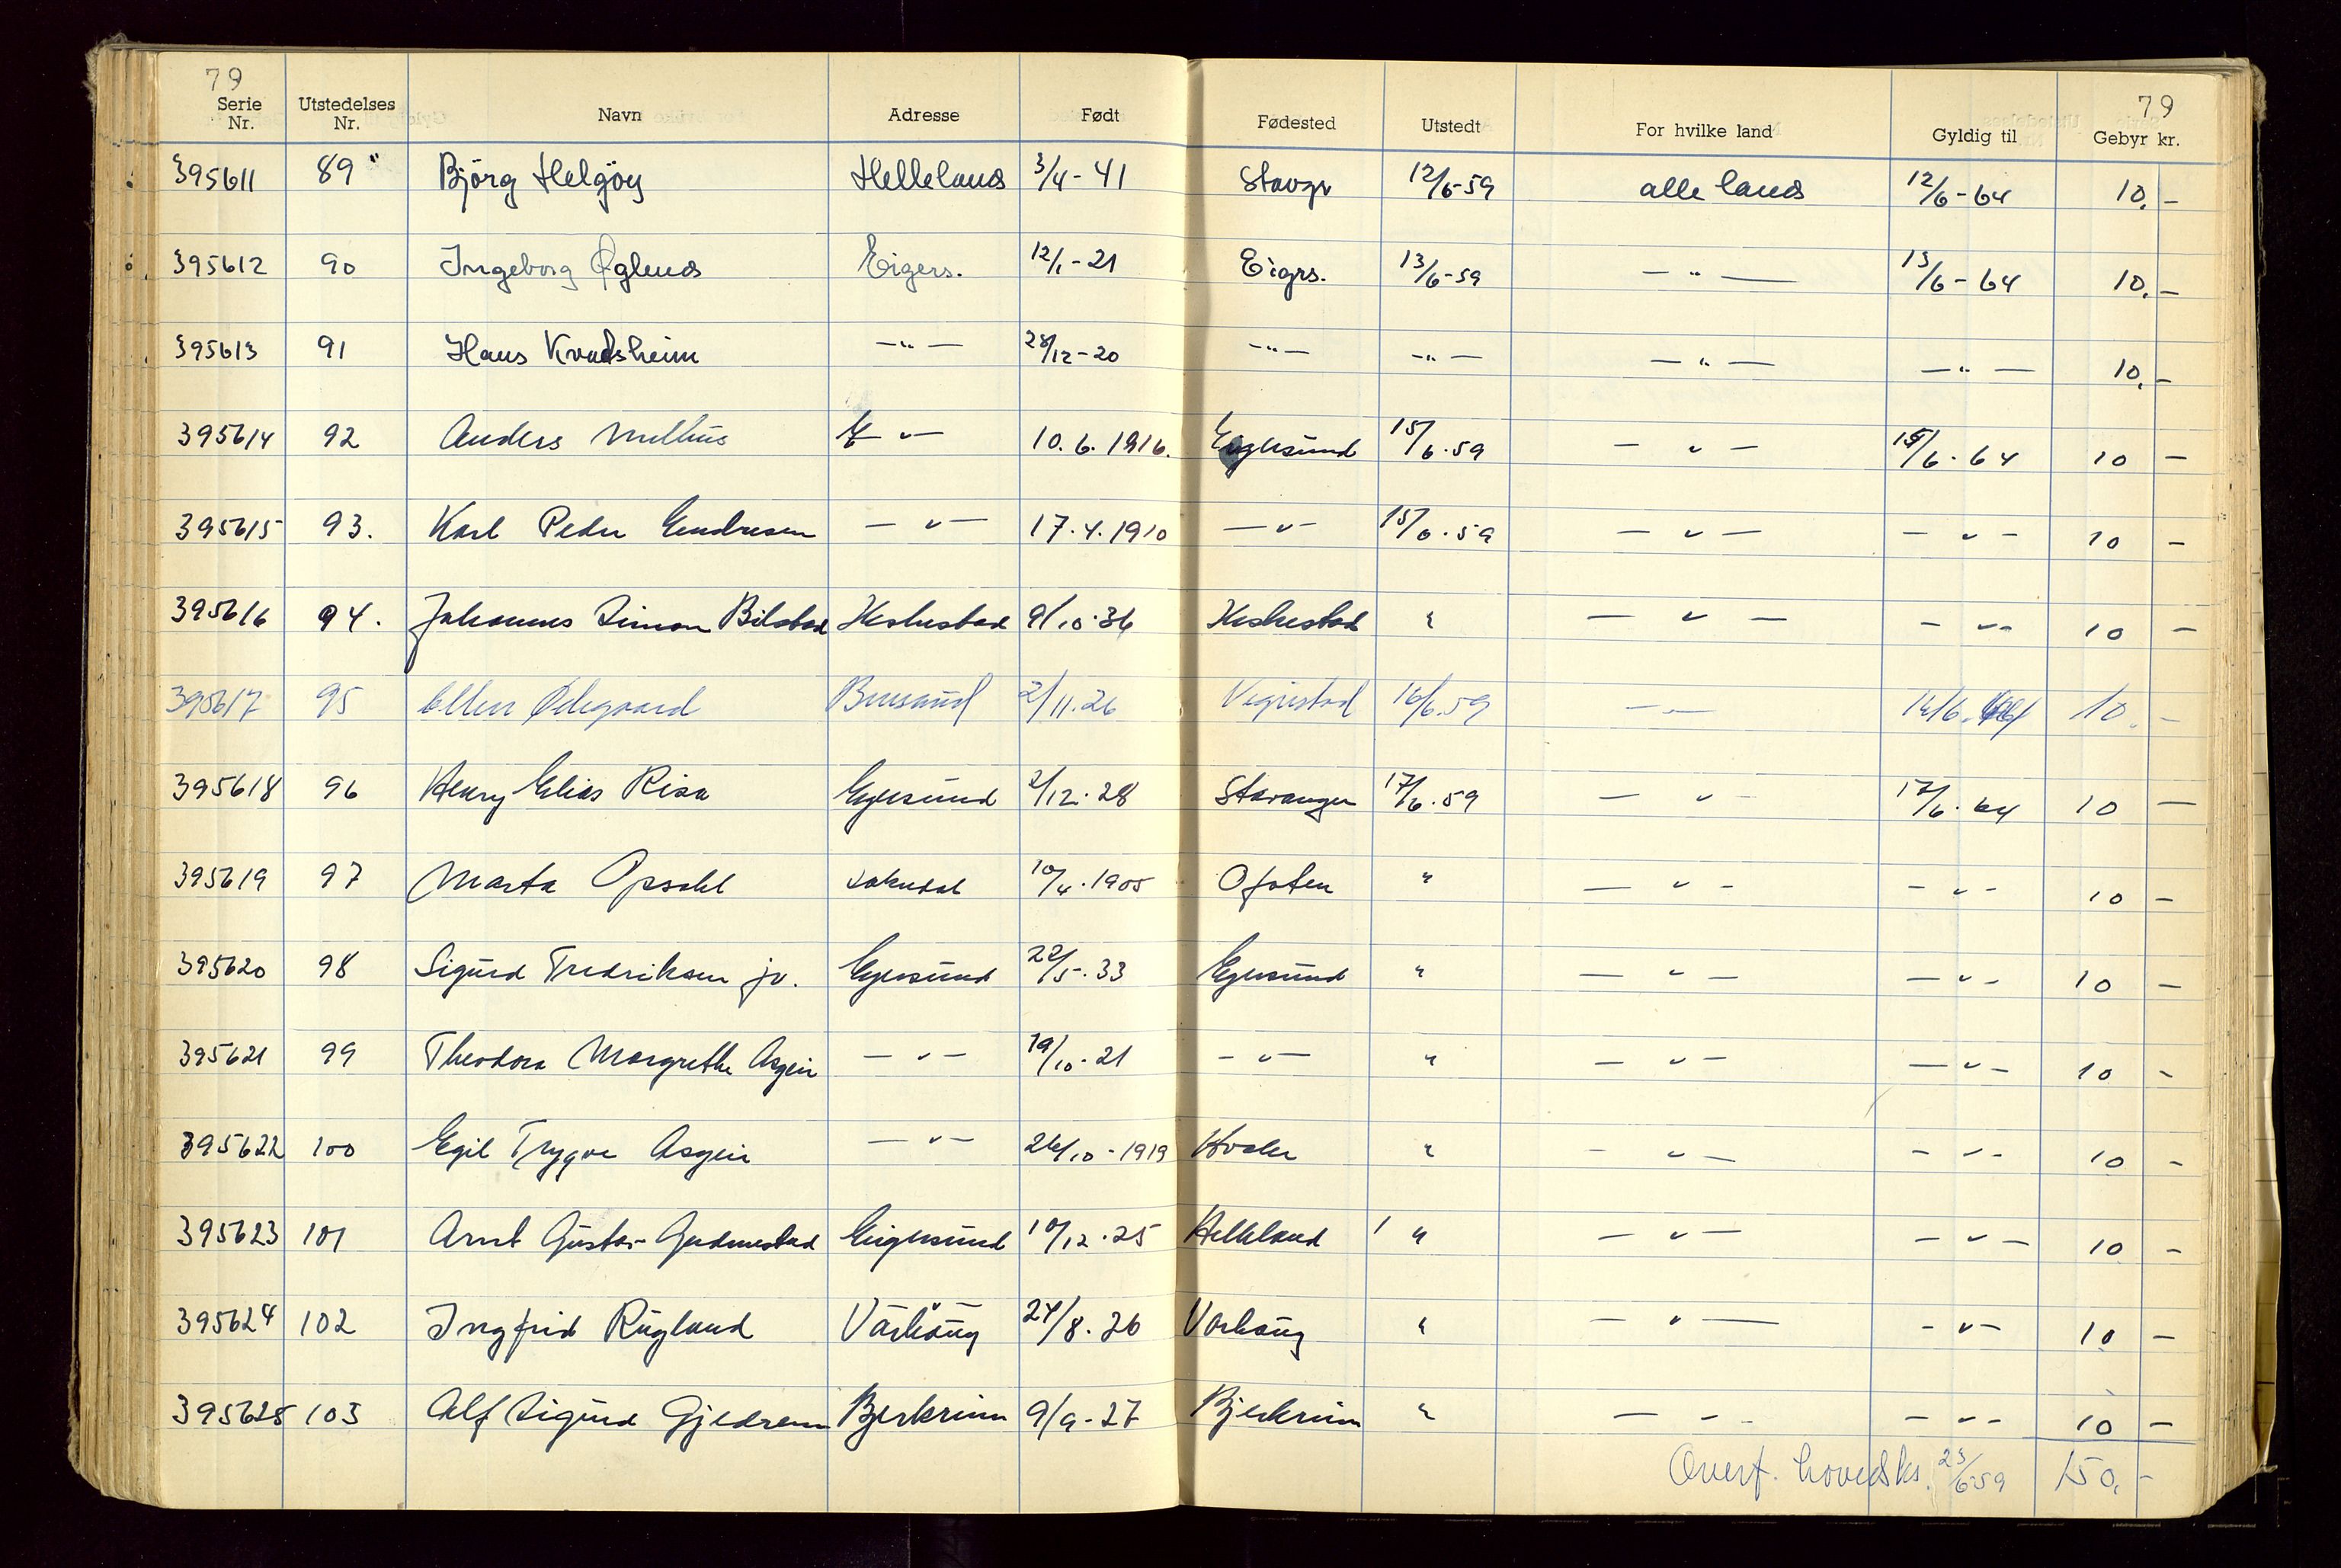 79 79
Serie Nr. Utstedelses Nr. Navn Adresse Født Fødested Utstedt For hvilke land Gyldig til Gebyr kr.
395611 89 Björg Helgöy Helleland 3/4-41 Stavgr 12/6-59 alle land 12/6-64 10,-
395612 90 Ingeborg Øglend Eigers. 12/1-21 Eigrs. 13/6-59 -"- 13/6-64 10,-
395613 91 Hans Kvadsheim -"- 28/12-20 -"- -"- -"- -"- 10,-
395614 92 Anders Melhus -"- 10.6.1916. Egersund 15/6.59 -"- 15/6.64 10 -
395615 93. Karl Peder Endresen -"- 17.4.1910 -"- 15/6.59 -"- -"- 10 -
395616 94. Johannes Simon Bilstad Heskestad 9/10.36 Heskestad " -"- -"- 10 -
395617 95 Ellen Ødegaard Brusand 2/11.26 Vigrestad 16/6.59 -"- 16/6.64 10.-
395618 96 Henry Elias Risa Egersund 2/12.28 Stavanger 17/6.59 -"- 17/6.64 10 -
395619 97 Marta Opsahl Sokndal 10/4.1905 Ofoten " -"- -"- 10 -
395620 98 Sigurd Fredriksen jr. Egersund 22/5.33 Egersund " -"- -"- 10 -
395621 99 Theodora Margrethe Asgeir -"- 19/10.21 -"- " -"- -"- 10 -
395622 100 Egil Trygve Asgeir -"- 26/10-1919 Hvaler " -"- -"- 10 -
395623 101 Arnt Gustav Gudmestad Eigersund 10/12.25 Helleland " -"- -"- 10 -
395624 102 Ingfrid Rugland Varhaug 24/8.26 Varhaug " -"- -"- 10 -
395625 103 Alf Sigurd Gjedrem Bjerkreim 9/9-27 Bjerkreim " -"- -"- 10 -
Overf. hovedks. 23/6-59 150,-